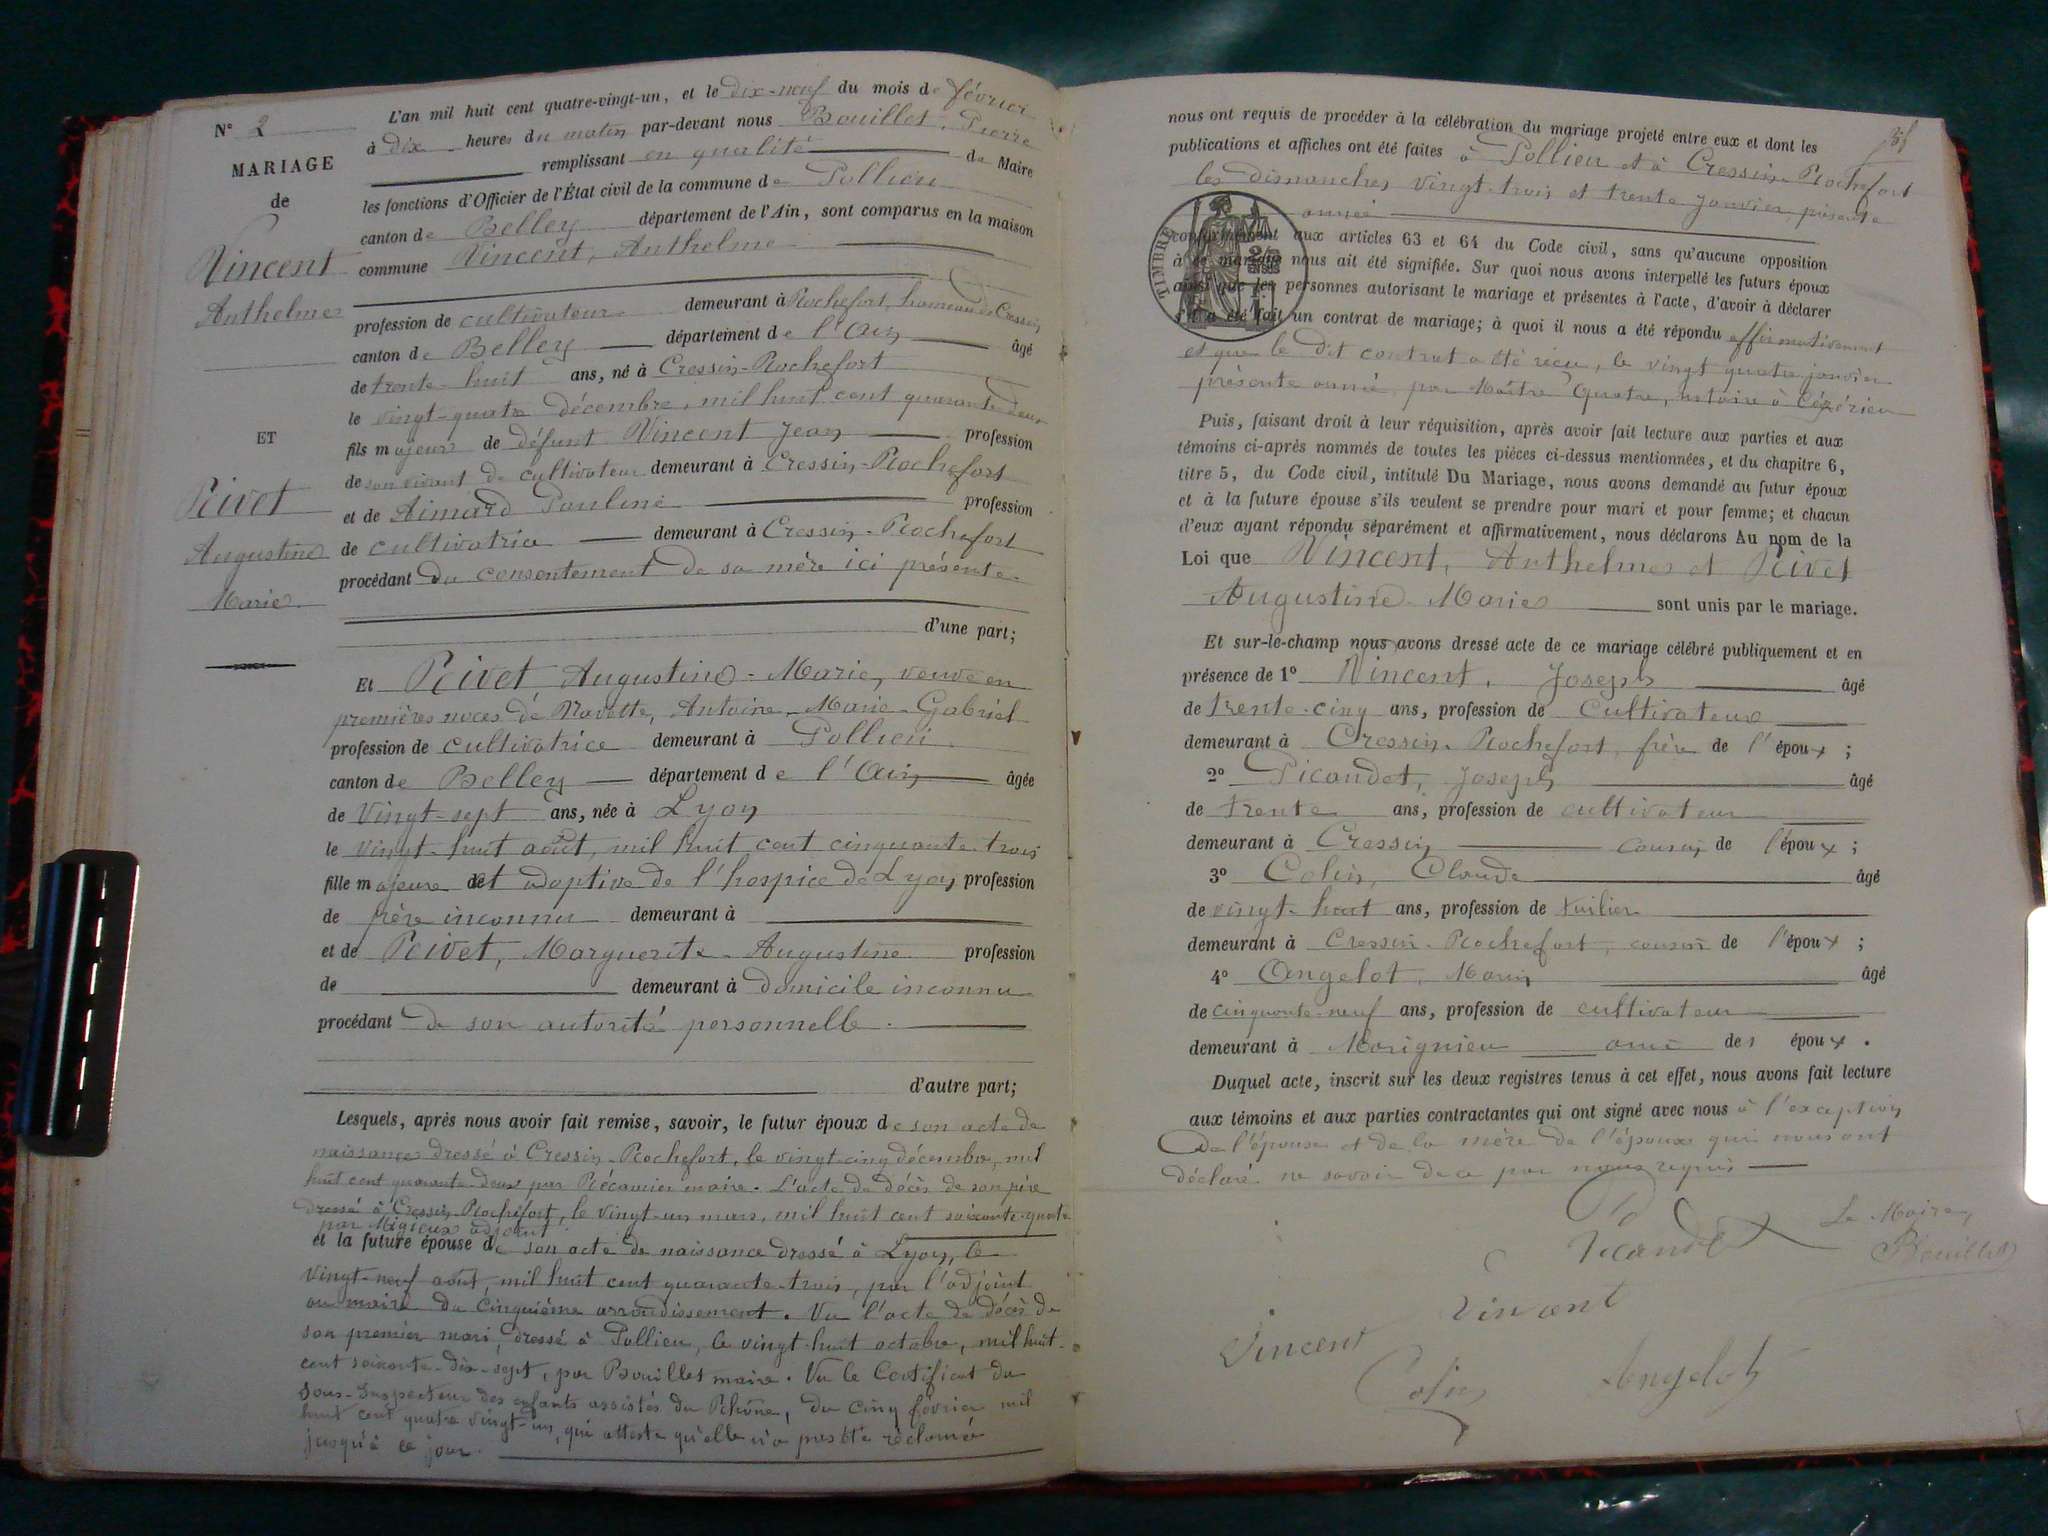 N° 2
MARIAGE
de
Vincent
Anthelme
ET
Rivet
Augustine
Marie
L'an mil huit cent quatre-vingt-un, et le dix-neuf du mois de février
à dix heures du matin par-devant nous Bouillet, Pierre
remplissant en qualité de Maire
les fonctions d'Officier de l'État civil de la commune de Pollieu
canton de Belley département de l'Ain, sont comparus en la maison
commune Vincent, Anthelme
profession de cultivateur demeurant à Rochefort, hameau de Cressin
canton de Belley département de l'Ain âgé
de trente-huit ans, né à Cressin-Rochefort
le vingt-quatre décembre, mil huit cent quarante deux
fils majeur de défunt Vincent Jean profession
de son vivant de cultivateur demeurant à Cressin-Rochefort
et de Aimard Pauline profession
de cultivatrice demeurant à Cressin-Rochefort
procédant du consentement de sa mère ici présente.
d'une part;
Et Rivet Augustine-Marie, veuve en
premières noces de Navette, Antoine-Marie-Gabriel
profession de cultivatrice demeurant à Pollieu
canton de Belley département de l'Ain âgée
de vingt-sept ans, née à Lyon
le vingt-huit août, mil huit cent cinquante-trois
fille majeure et adoptive de l'hospice de Lyon profession
de père inconnu demeurant à
et de Rivet, Marguerite-Augustine profession
de demeurant à domicile inconnu
procédant de son autorité personnelle.
d'autre part;
Lesquels, après nous avoir fait remise, savoir, le futur époux de son acte de
naissance dressé à Cressin-Rochefort, le vingt-cinq décembre, mil
huit cent quarante-deux par Récamier maire. L'acte de décès de son père
dressé à Cressin-Rochefort, le vingt-un mars, mil huit cent soixante-quatre
par Migieux adjoint
et la future épouse de son acte de naissance dressé à Lyon, le
vingt-neuf août, mil huit cent quarante-trois, par l'adjoint
au maire du cinquième arrondissement. Vu l'acte de décès de
son premier mari, dressé à Pollieu, le vingt-huit octobre, mil huit-
cent soixante-dix-sept, par Bouillet maire. Vu le Certificat du
Sous-Inspecteur des enfants assistés du Rhône, du cinq février mil
huit cent quatre vingt-un, qui atteste qu'elle n'a pas été réclamée
jusqu'à ce jour.
nous ont requis de procéder à la célébration du mariage projeté entre eux et dont les
publications et affiches ont été faites à Pollieu et à Cressin-Rochefort
les dimanches vingt-trois et trente janvier, présente
année
TIMBRE
conformément aux articles 63 et 64 du Code civil, sans qu'aucune opposition
à ce mariage nous ait été signifiée. Sur quoi nous avons interpellé les futurs époux
ainsi que les personnes autorisant le mariage et présentes à l'acte, d'avoir à déclarer
s'il a été fait un contrat de mariage; à quoi il nous a été répondu affirmativement
et que le dit contrat a été reçu, le vingt quatre janvier
présente année par Maître Quatre, notaire à Cézérieu
Puis, faisant droit à leur réquisition, après avoir fait lecture aux parties et aux
témoins ci-après nommés de toutes les pièces ci-dessus mentionnées, et du chapitre 6,
titre 5, du Code civil, intitulé Du Mariage, nous avons demandé au futur époux
et à la future épouse s'ils veulent se prendre pour mari et pour femme; et chacun
d'eux ayant répondu séparément et affirmativement, nous déclarons Au nom de la
Loi que Vincent, Anthelme et Rivet
Augustine-Marie sont unis par le mariage.
Et sur-le-champ nous avons dressé acte de ce mariage célébré publiquement et en
présence de 1° Vincent, Joseph âgé
de trente-cinq ans, profession de Cultivateur
demeurant à Cressin-Rochefort, frère de l'époux;
2° Picandet, Joseph âgé
de trente ans, profession de cultivateur
demeurant à Cressin cousin de l'époux;
3° Colin, Claude âgé
de vingt-huit ans, profession de tuilier
demeurant à Cressin-Rochefort, cousin de l'époux;
4° Angelot, Marin âgé
de cinquante-neuf ans, profession de cultivateur
demeurant à Marignieu ami des époux.
Duquel acte, inscrit sur les deux registres tenus à cet effet, nous avons fait lecture
aux témoins et aux parties contractantes qui ont signé avec nous à l'exception
de l'épouse et de la mère de l'époux qui nous ont
déclaré ne savoir de ce par nous requis
Picandet
Le Maire,
Bouillet
Vincent
Vincent
Colin
Angelot